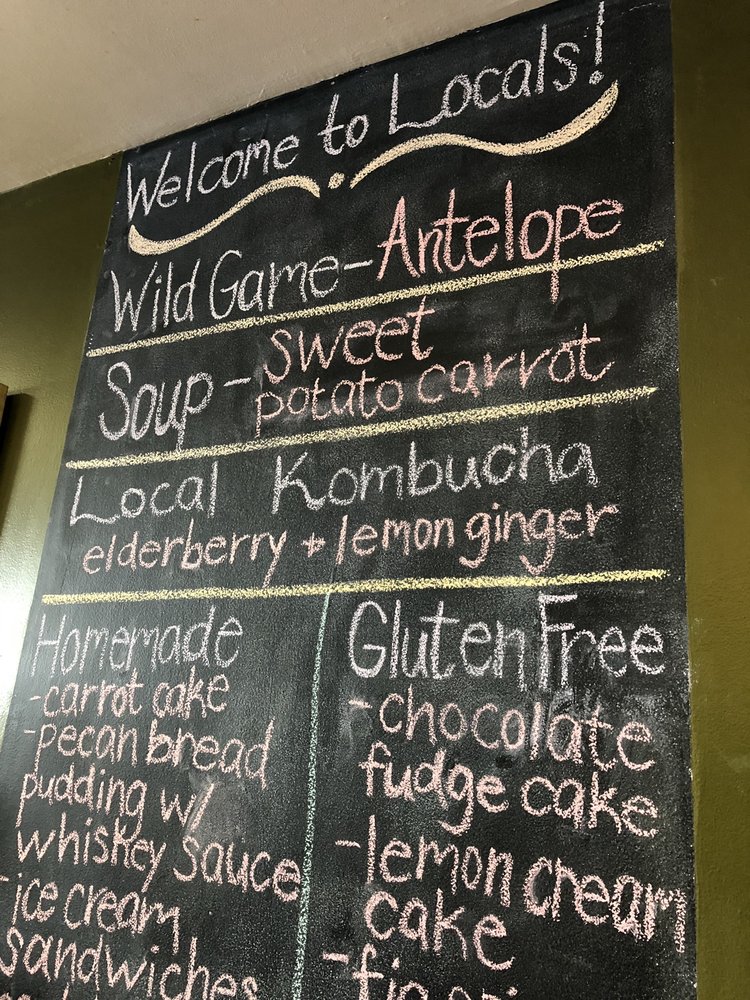 Welcome to Locals!
Wild Game - Antelope
Soup - sweet
potato carrot
Local Kombucha
elderberry + lemon ginger
Homemade
- carrot cake
- pecan bread
pudding w/
whiskey sauce
- ice cream
sandwiches
Gluten Free
- chocolate
fudge cake
- lemon cream
cake
-